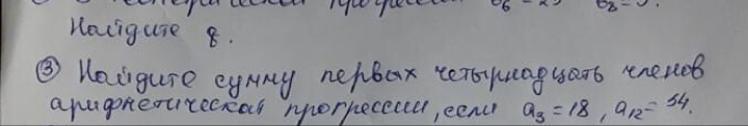 прогрессии b₆ = 25 b₈ = 9.
Найдите q.
③ Найдите сумму первых четырнадцать членов
арифметической прогрессии, если a₃ = 18, a₁₂ = 54.